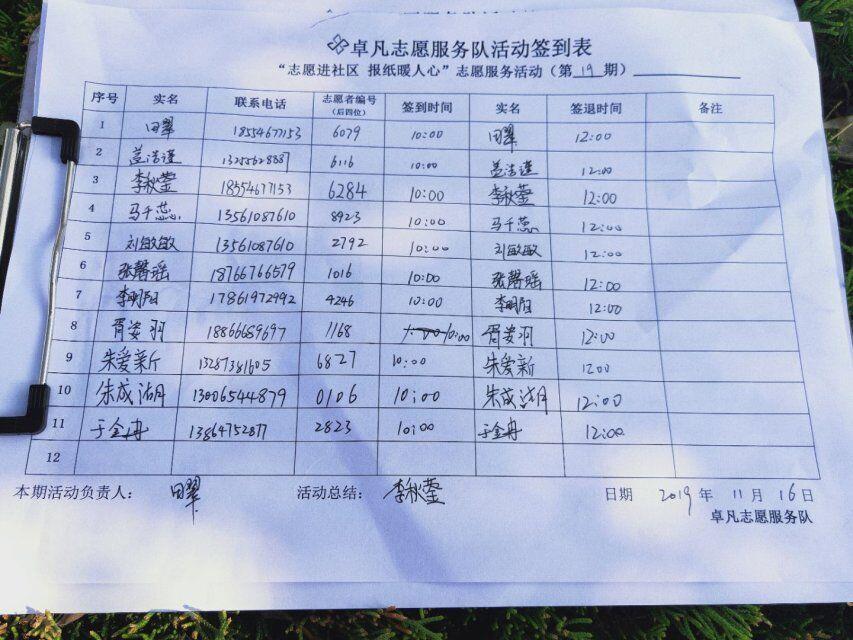 卓凡志愿服务队活动签到表
“志愿进社区 报纸暖人心”志愿服务活动（第 19 期）
序号 实名 联系电话 志愿者编号（后四位） 签到时间 实名 签退时间 备注
1 田翠 18554677153 6079 10:00 田翠 12:00
2 盖洁谨 13255628887 6116 10:00 盖洁谨 12:00
3 李秋莹 18554677153 6284 10:00 李秋莹 12:00
4 马千蕊 13561087610 8923 10:00 马千蕊 12:00
5 刘敏敏 13561087610 2792 10:00 刘敏敏 12:00
6 张馨瑶 18766766579 1016 10:00 张馨瑶 12:00
7 李明阳 17861972992 4246 10:00 李明阳 12:00
8 胥姿羽 18866689697 1168 10:00 胥姿羽 12:00
9 朱爱新 13287381605 6827 10:00 朱爱新 1200
10 朱成湖月 13006544879 0106 10:00 朱成湖月 12:00
11 于金冉 13864752877 2823 10:00 于金冉 12:00
12
本期活动负责人： 田翠 活动总结： 李秋莹 日期 2019 年 11 月 16 日
卓凡志愿服务队